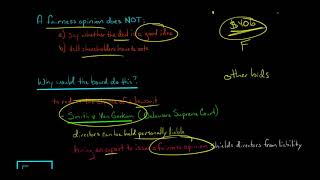 A fairness opinion does NOT:
a) Say whether the deal is a good idea
b) tell shareholders how to vote
$40b
F
other bids
Why would the board do this?
to red of a lawsuit
- Smith v. Van Gorkom (Delaware Supreme Court)
directors can be held personally liable
hiring an expert to issue a fairness opinion shields directors from liability